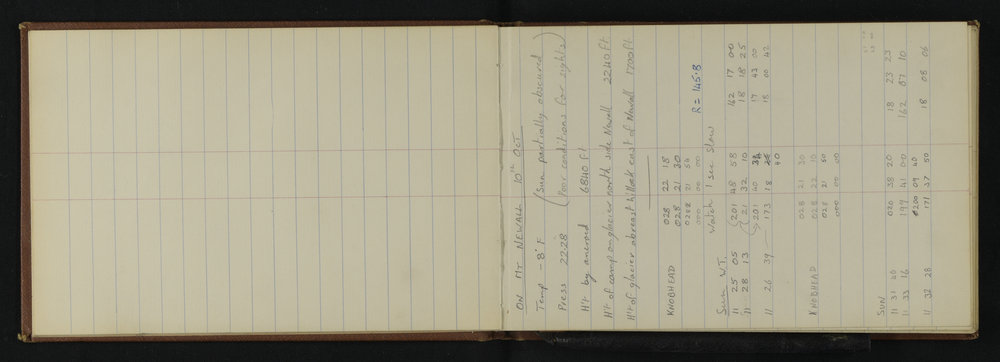 ON MT NEWALL 10TH OCT
Temp -8°F (Sun partially obscured
Press 22.28 (Poor conditions for sights)
H't by aneroid 6840 ft
H't of camp on glacier north side Newall 2240 ft
H't of glacier abreast hillock east of Newall 1700 ft
KNOBHEAD 028 22 18
028 21 30
028 21 54
000 00 00
R = 145.8
Watch 1 sec slow
Sun W.T.
11 25 05 201 48 58 162 17 00
11 28 13 21 32 10 18 18 25
201 40 34 17 43 00
11 26 39 173 18 18 00 42
40
KNOBHEAD 028 21 30
028 22 10
028 21 50
000 00 00
SUN 020 38 20 18 23 23
11 31 40 199 41 00 162 07 10
11 33 16 0200 09 40
11 32 28 171 37 50 18 08 06